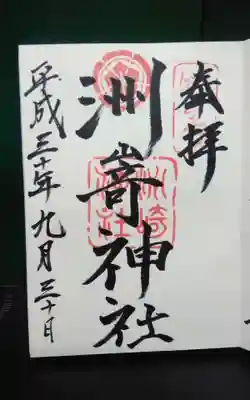 奉拝
洲嵜神社
平成三十年九月三十日